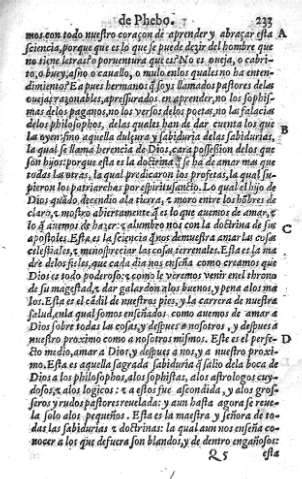 de Phebo. 233
mos con todo nuestro coraçon de aprender y abraçar esta A
sciencia, porque que es lo que se puede dezir del hombre que
no tiene letras? o por uentura que es? No es oueja, o cabri-
to, o buey, asno o cauallo, o mulo, enlos quales no ha enten-
dimiento? Ea pues hermanos q̃ soys llamados pastores delas
ouejas razonables, apressurados en aprender, no los sophis-
mas delos paganos, no los versos delos poetas, no las falacias
delos philosophos, delas quales han de dar cuenta los que B
la oyen: sino aquella dulçura y sabiduria delas sabidurias,
la qual se llama herencia de Dios, cara possession delos que
son hijos: porque esta es la doctrina q̃ se ha de amar mas que
todas las otras, la qual predicaron los prophetas, la qual su-
pieron los patriarchas por espiritu sancto. Lo qual el hijo de
Dios quãdo decendio ala tierra, ⁊ moro entre los hõbres de
claro, ⁊ mostro abiertamente q̃ es lo que auemos de amar, ⁊
lo q̃ auemos de hazer: ⁊ alumbro nos con la doctrina de sus C
apostoles. Esta es la sciencia q̃ nos demuestra amar las cosas
celestiales, ⁊ menospreciar las cosas terrenales. Esta es la ma
dre delos fieles, que cada dia nos enseña como creamos que
Dios es todo poderoso: ⁊ como le veremos venir enel throno
de su magestad, ⁊ dar galardon alos buenos, y pena alos ma
los. Esta es el cãdil de nuestros pies, y la carrera de nuestra
salud, enla qual somos enseñados como auemos de amar a
Dios sobre todas las cosas, y despues a nosotros, y despues a
nuestro proximo como a nosotros mismos. Este es el perfe- D
cto medio, amar a Dios, y despues a nos, y a nuestro proxi-
mo. Esta es aquella sagrada sabiduria q̃ salio dela boca de
Dios a los philosophos, alos sophistas, alos astrologos cuy-
dosos, ⁊ alos logicos: ⁊ a estos fue ascondida, y alos gros-
seros y rudos pastores reuelada: y aun hasta agora se reue-
la solo alos pequeños. Esta es la maestra y señora de to-
das las sabidurias ⁊ doctrinas: la qual aun nos enseña co-
nocer a los que defuera son blandos, y de dentro engañosos:
esta